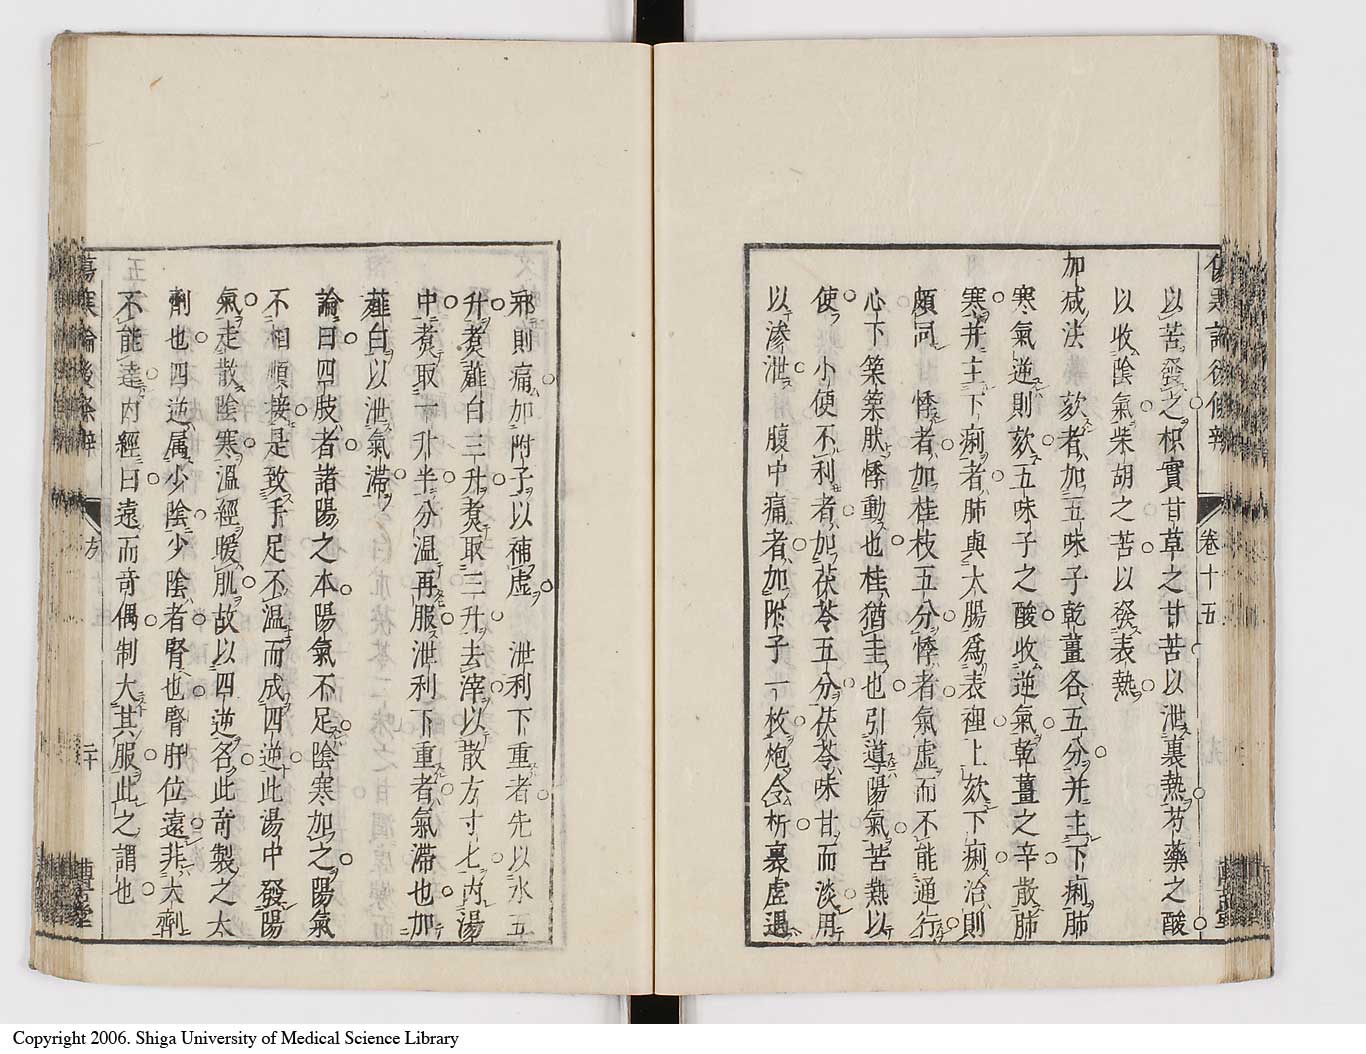 卷十五
以苦發之枳實甘草之甘苦以泄裏熱芍藥之酸
以收陰氣柴胡之苦以發表熱
加减法欬者加五味子乾薑各五分并主下痢肺
寒氣逆則欬五味子之酸收逆氣乾薑之辛散肺
寒并主下痢者肺與大腸爲表裡上欬下痢治則
頗同悸者加桂枝五分悸者氣虚而不能通行
心下築築肰悸動也桂猶圭也引導陽氣苦熱以
使小便不利者加茯苓五分茯苓味甘而淡用
以滲泄腹中痛者加附子一枚炮令坼裏虚遇
邪則痛加附子以補虚泄利下重者先以水五
升煑薤白三升煑取三升去滓以散方寸匕内湯
中煑取一升半分温再服泄利下重者氣滞也加
薤白以泄氣滞
論曰四肢者諸陽之本陽氣不足陰寒加之陽氣
不相順接是致手足不温而成四逆此湯中發陽
氣走散陰寒温經暖肌故以四逆各此奇製之大
劑也四逆属少陰少陰者腎也腎肝位遠非大劑
不能達内經曰遠而奇偶制大其服此之謂也
傷寒論後條辯
方
二十
Copyright 2006. Shiga University of Medical Science Library